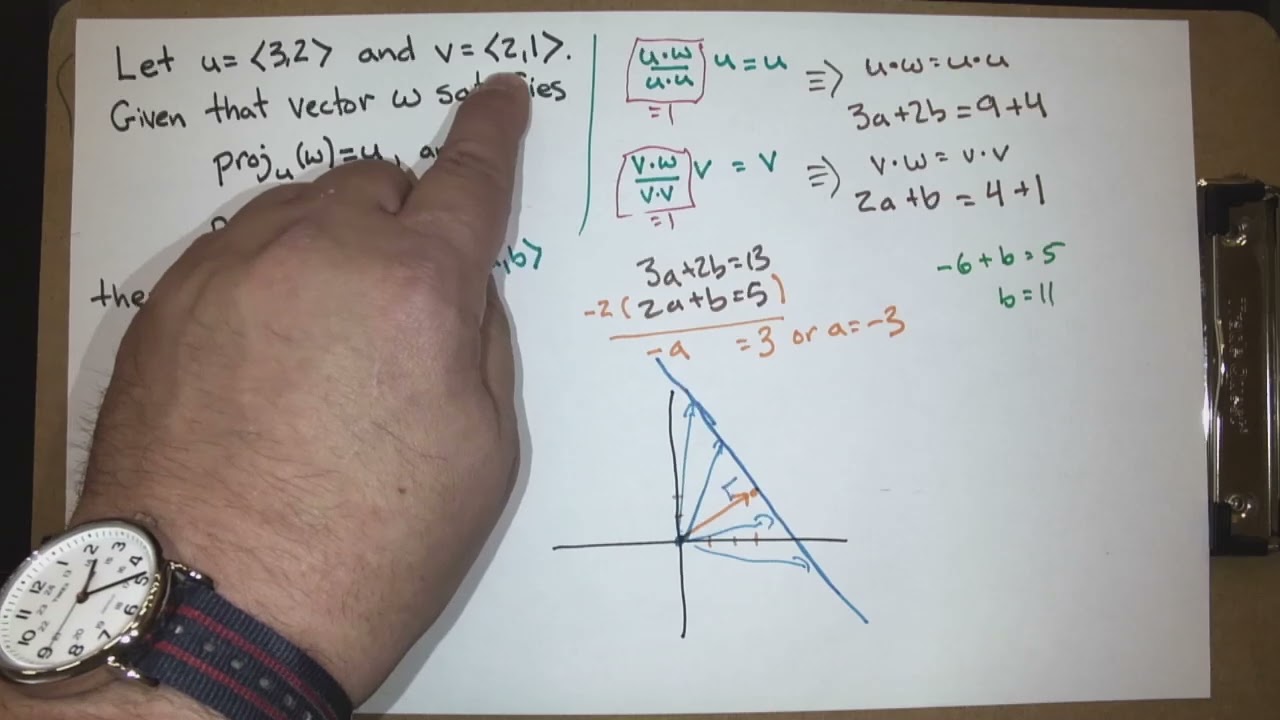 Let u = <3,2> and v = <2,1>.
Given that vector w satisfies
proj_u(w) = u, a
the
,b>
u·w/u·u u = u ⇒ u·w = u·u
=1
3a+2b = 9+4
v·w/v·v v = v ⇒ v·w = v·v
=1
2a+b = 4+1
3a+2b=13
-2(2a+b=5)
-a =3 or a=-3
-6+b=5
b=11
12
1
2
3
4
5
6
7
8
9
10
11
TIMEX